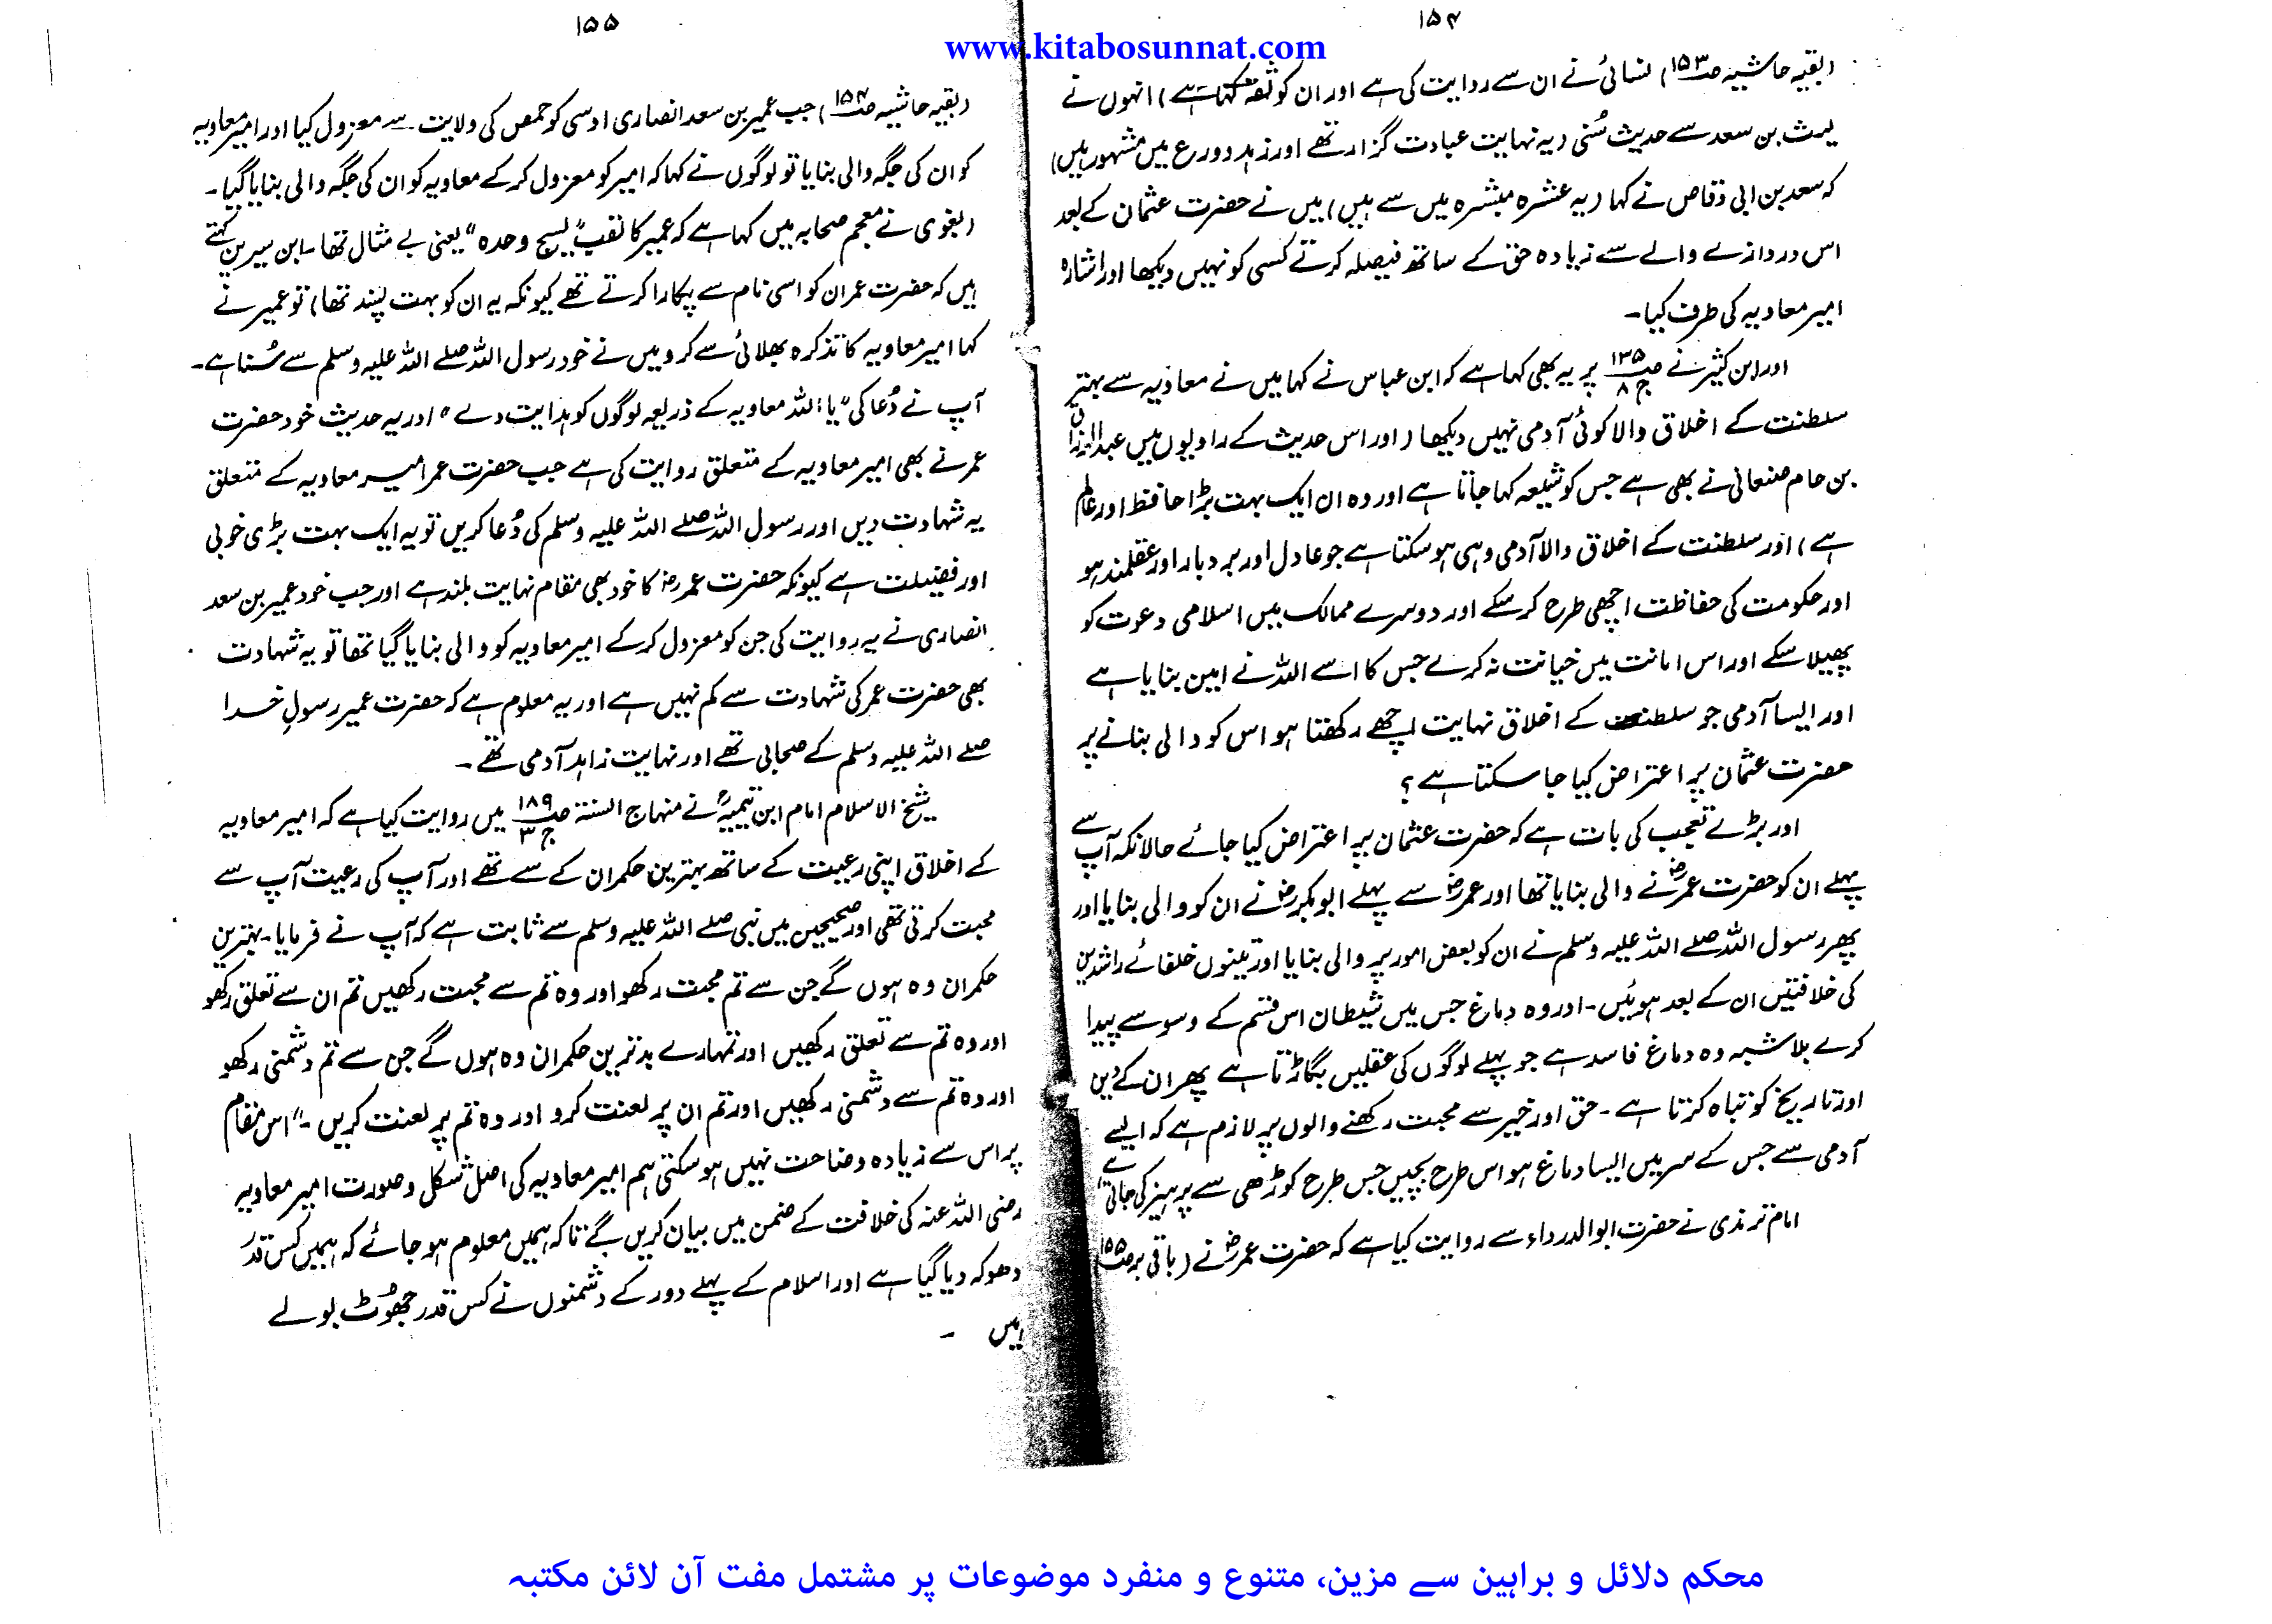 ۱۵۴
www.kitabosunnat.com
(بقیہ حاشیہ صـ۱۵۳) نسائی نے ان سے روایت کی ہے اور ان کو ثقہ کہتا ہے) انہوں نے
لیث بن سعد سے حدیث سُنی (یہ نہایت عبادت گزار تھے اور زہد و ورع میں مشہور ہیں)
کہ سعد بن ابی وقاص نے کہا (یہ عشرہ مبشرہ میں سے ہیں) میں نے حضرت عثمان کے بعد
اس دروازے والے سے زیادہ حق کے ساتھ فیصلہ کرتے کسی کو نہیں دیکھا اور اشارہ
امیر معاویہ کی طرف کیا۔
اور ابن کثیر نے صـ۱۳۵ ج ۸ پر یہ بھی کہا ہے کہ ابن عباس نے کہا میں نے معاویہ سے بہتر
سلطنت کے اخلاق والا کوئی آدمی نہیں دیکھا (اور اس حدیث کے راویوں میں عبدالرزاق
بن حام صنعانی نے بھی ہے جس کو شیعہ کہا جاتا ہے اور وہ ان ایک بہت بڑا حافظ اور عالم
ہے) اور سلطنت کے اخلاق والا آدمی وہی ہو سکتا ہے جو عادل اور بردبار اور عقلمند ہو
اور حکومت کی حفاظت اچھی طرح کر سکے اور دوسرے ممالک میں اسلامی دعوت کو
پھیلا سکے اور اس امانت میں خیانت نہ کرے جس کا اسے اللہ نے امین بنایا ہے
اور ایسا آدمی جو سلطنت کے اخلاق نہایت اچھے رکھتا ہو اس کو والی بنانے پر
حضرت عثمان پر اعتراض کیا جا سکتا ہے؟
اور بڑے تعجب کی بات ہے کہ حضرت عثمان پر اعتراض کیا جائے حالانکہ آپ سے
پہلے ان کو حضرت عمرؓ نے والی بنایا تھا اور عمرؓ سے پہلے ابوبکرؓ نے ان کو والی بنایا اور
پھر رسول اللہ صلے اللہ علیہ وسلم نے ان کو بعض امور پر والی بنایا اور تینوں خلفائے راشدین
کی خلافتیں ان کے بعد ہوئیں۔ اور وہ دماغ جس میں شیطان اس قسم کے وسوسے پیدا
کرے بلا شبہ وہ دماغ فاسد ہے جو پہلے لوگوں کی عقلیں بگاڑتا ہے پھر ان کے دین
اور تاریخ کو تباہ کرتا ہے۔ حق اور خیر سے محبت رکھنے والوں پر لازم ہے کہ ایسے
آدمی سے جس کے سر میں ایسا دماغ ہو اس طرح بچیں جس طرح کوڑھی سے پرہیز کی جاتی ہے
امام ترمذی نے حضرت ابوالدرداء سے روایت کیا ہے کہ حضرت عمرؓ نے (باقی بر صـ۱۵۵)
۱۵۵
(بقیہ حاشیہ صـ۱۵۴) جب عمیر بن سعد انصاری اوسی کو حمص کی ولایت سے معزول کیا اور امیر معاویہ
کو ان کی جگہ والی بنایا تو لوگوں نے کہا کہ امیر کو معزول کر کے معاویہ کو ان کی جگہ والی بنایا گیا۔
(بغوی نے معجم صحابہ میں کہا ہے کہ عمیر کا نقب "نسیج وحدہ" یعنی بے مثال تھا۔ ابن سیرین کہتے
ہیں کہ حضرت عمران کو اسی نام سے پکارا کرتے تھے کیونکہ یہ ان کو بہت پسند تھا) تو عمیر نے
کہا امیر معاویہ کا تذکرہ بھلائی سے کرو میں نے خود رسول اللہ صلے اللہ علیہ وسلم سے سُنا ہے۔
آپ نے دُعا کی "یا اللہ معاویہ کے ذریعہ لوگوں کو ہدایت دے" اور یہ حدیث خود حضرت
عمر نے بھی امیر معاویہ کے متعلق روایت کی ہے جب حضرت عمر امیر معاویہ کے متعلق
یہ شہادت دیں اور رسول اللہ صلے اللہ علیہ وسلم کی دُعا کریں تو یہ ایک بہت بڑی خوبی
اور فضیلت ہے کیونکہ حضرت عمرؓ کا خود بھی مقام نہایت بلند ہے اور جب خود عمیر بن سعد
انصاری نے یہ روایت کی جن کو معزول کر کے امیر معاویہ کو والی بنایا گیا تھا تو یہ شہادت
بھی حضرت عمر کی شہادت سے کم نہیں ہے اور یہ معلوم ہے کہ حضرت عمیر رسولِ خدا
صلے اللہ علیہ وسلم کے صحابی تھے اور نہایت زاہد آدمی تھے۔
شیخ الاسلام امام ابن تیمیہؒ نے منہاج السنۃ صـ۱۸۹ ج ۳ میں روایت کیا ہے کہ امیر معاویہ
کے اخلاق اپنی رعیت کے ساتھ بہترین حکمران کے سے تھے اور آپ کی رعیت آپ سے
محبت کرتی تھی اور صحیحین میں نبی صلے اللہ علیہ وسلم سے ثابت ہے کہ آپ نے فرمایا۔ بہترین
حکمران وہ ہوں گے جن سے تم محبت رکھو اور وہ تم سے محبت رکھیں تم ان سے تعلق رکھو
اور وہ تم سے تعلق رکھیں اور تمہارے بدترین حکمران وہ ہوں گے جن سے تم دشمنی رکھو
اور وہ تم سے دشمنی رکھیں اور تم ان پر لعنت کرو اور وہ تم پر لعنت کریں۔" اس مقام
پر اس سے زیادہ وضاحت نہیں ہو سکتی ہم امیر معاویہ کی اصل شکل و صورت امیر معاویہ
رضی اللہ عنہ کی خلافت کے ضمن میں بیان کریں گے تاکہ ہمیں معلوم ہو جائے کہ ہمیں کس قدر
دھوکہ دیا گیا ہے اور اسلام کے پہلے دور کے دشمنوں نے کس قدر جھُوٹ بولے
ہیں۔
محکم دلائل و براہین سے مزین، متنوع و منفرد موضوعات پر مشتمل مفت آن لائن مکتبہ